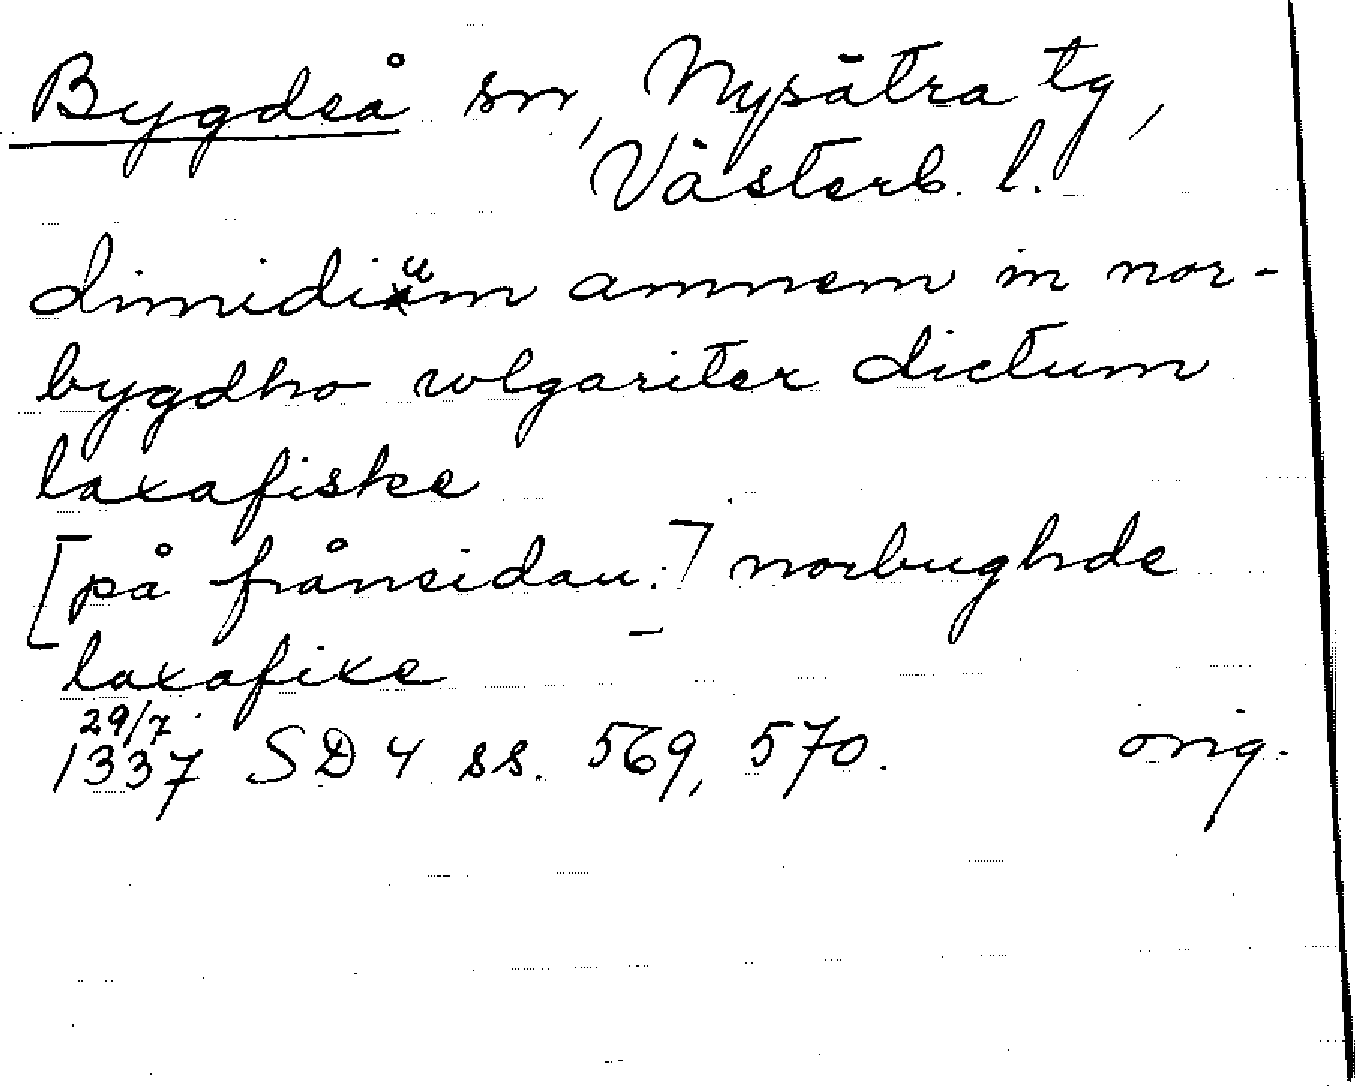 Bygdeå sn, Nysätra tg,
Västerb. l.
dimidium amnem in nor-
bygdho wlgariter dictum
laxafiske
[på frånsidan:] norbughde
laxafixe
29/7
1337 SD 4 ss. 569, 570. orig.